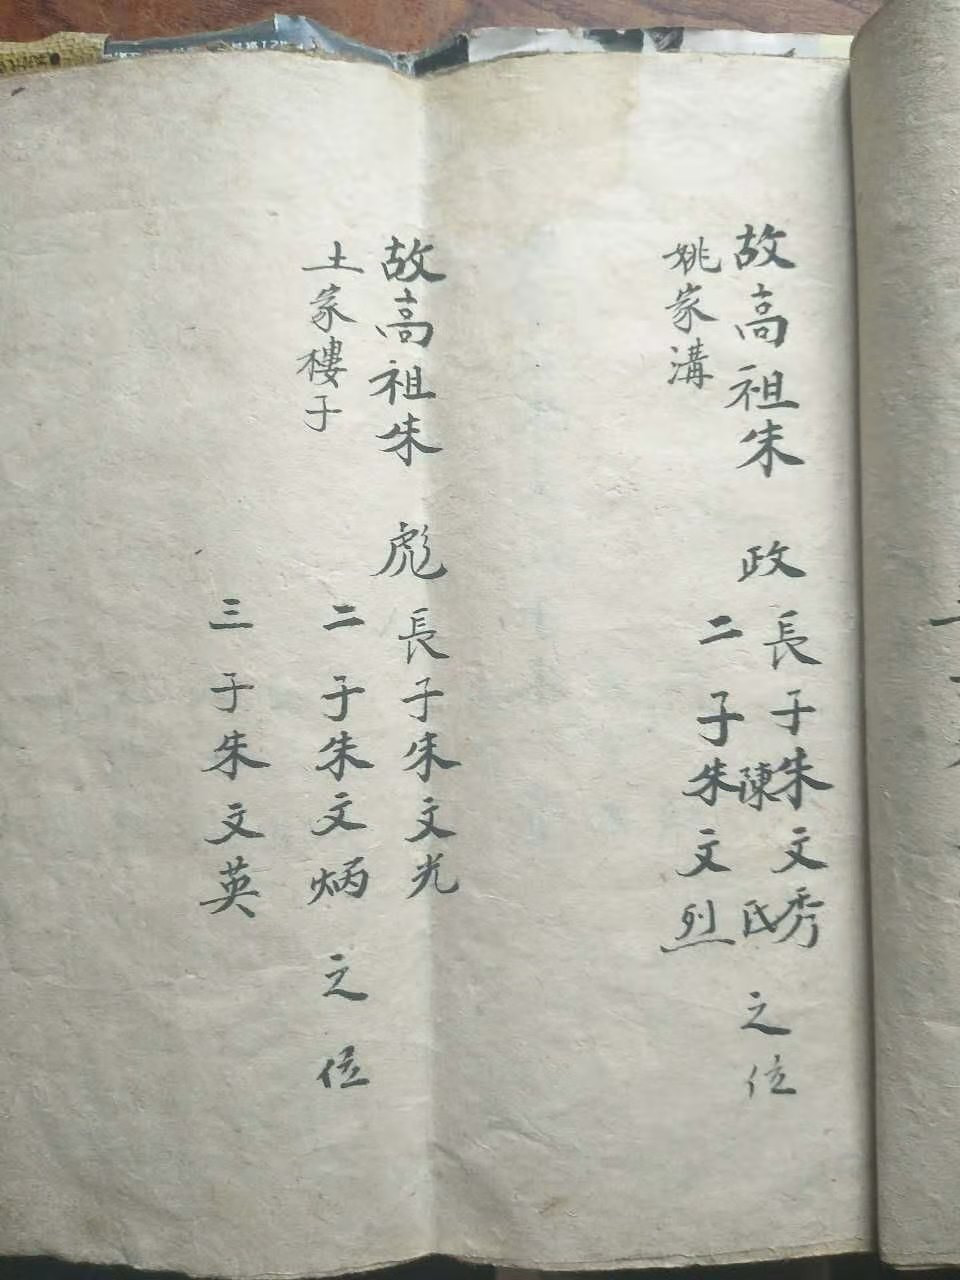 故高祖朱 政 長子朱文秀
陳氏 之位
姚家溝 二子朱文烈
故高祖朱 彪 長子朱文光
土家樓子 二子朱文炳 之位
三子朱文英